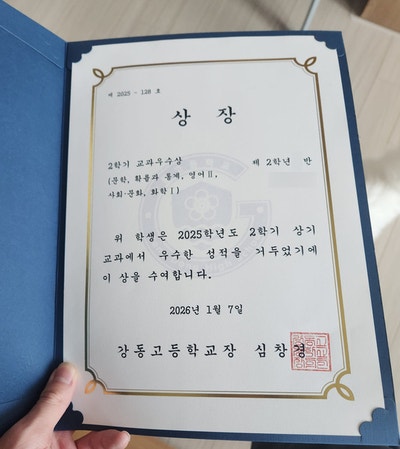 제 2025 - 128 호
상 장
2학기 교과우수상 제 2학년 반
(문학, 확률과 통계, 영어Ⅱ,
사회·문화, 화학Ⅰ)
위 학생은 2025학년도 2학기 상기
교과에서 우수한 성적을 거두었기에
이 상을 수여합니다.
2026년 1월 7일
강동고등학교장 심창경